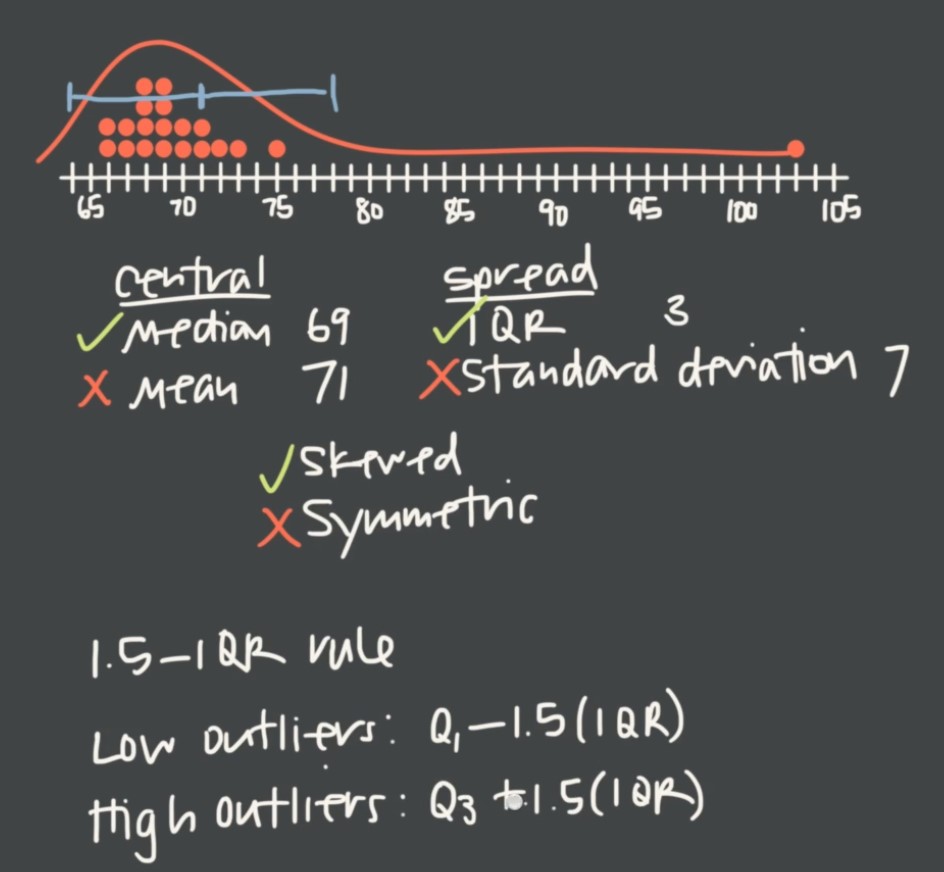 65 70 75 80 85 90 95 100 105
central spread
✓ Median 69 ✓ IQR 3
X Mean 71 X Standard deviation 7
✓ Skewed
X Symmetric
1.5-IQR rule
Low outliers: Q₁-1.5(IQR)
High outliers: Q3 +1.5(IQR)